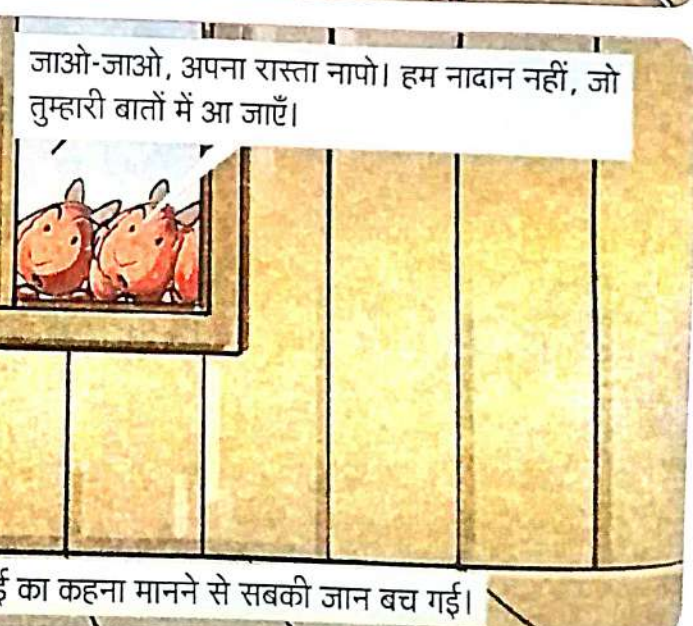 जाओ-जाओ, अपना रास्ता नापो। हम नादान नहीं, जो
तुम्हारी बातों में आ जाएँ।
का कहना मानने से सबकी जान बच गई।